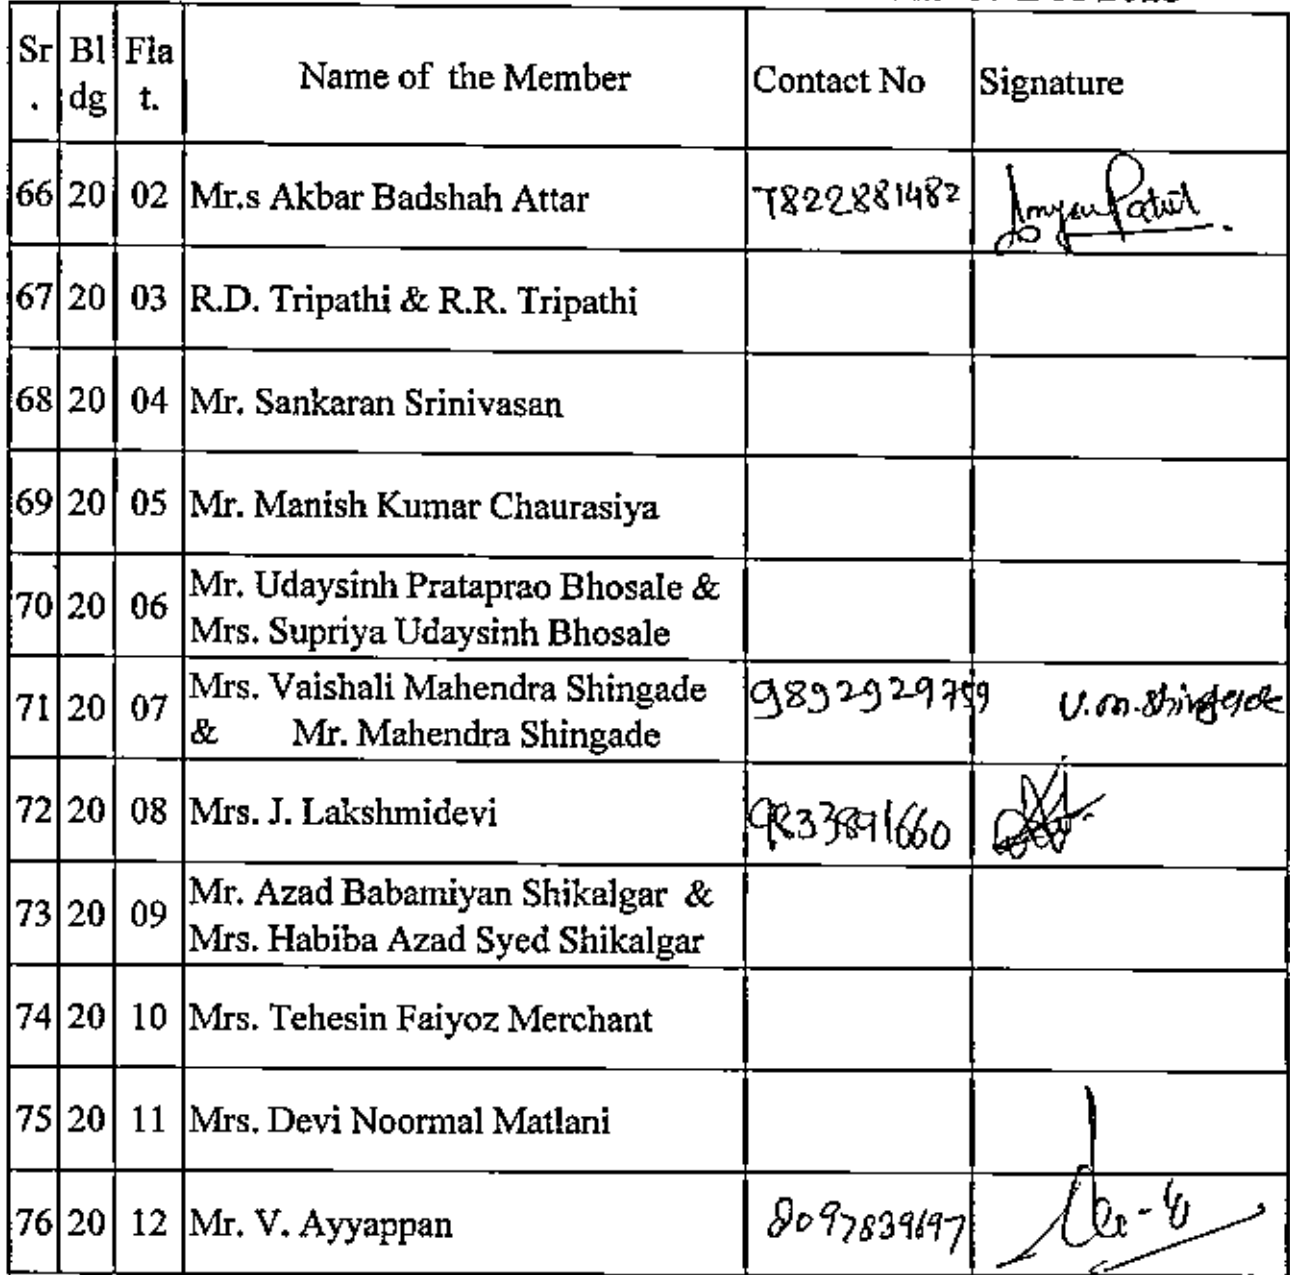 Sr. Bldg Flat. Name of the Member Contact No Signature
66 20 02 Mr.s Akbar Badshah Attar 7822881482 Patil
67 20 03 R.D. Tripathi & R.R. Tripathi
68 20 04 Mr. Sankaran Srinivasan
69 20 05 Mr. Manish Kumar Chaurasiya
70 20 06 Mr. Udaysinh Prataprao Bhosale &
Mrs. Supriya Udaysinh Bhosale
71 20 07 Mrs. Vaishali Mahendra Shingade 9892929759 V.m.Shingade
& Mr. Mahendra Shingade
72 20 08 Mrs. J. Lakshmidevi 9833891660
73 20 09 Mr. Azad Babamiyan Shikalgar &
Mrs. Habiba Azad Syed Shikalgar
74 20 10 Mrs. Tehesin Faiyoz Merchant
75 20 11 Mrs. Devi Noormal Matlani
76 20 12 Mr. V. Ayyappan 8097839697